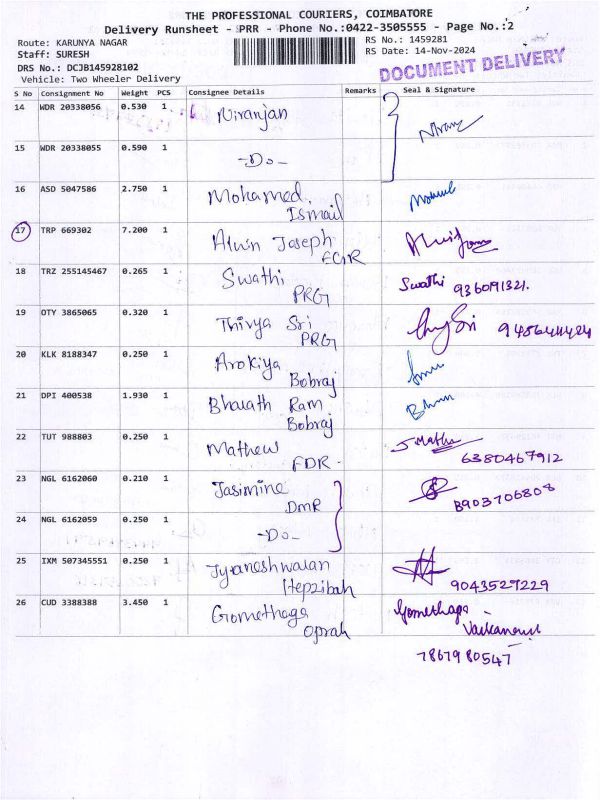 THE PROFESSIONAL COURIERS, COIMBATORE
Delivery Runsheet - PRR - Phone No.:0422-3505555 - Page No.:2
Route: KARUNYA NAGAR
RS No.: 1459281
Staff: SURESH
RS Date: 14-Nov-2024
DRS No.: DCJB145928102
DOCUMENT DELIVERY
Vehicle: Two Wheeler Delivery
S No Consignment No Weight PCS Consignee Details Remarks Seal & Signature
14 WDR 20338056 0.530 1 Niranjan
15 WDR 20338055 0.590 1 -Do-
16 ASD 5047586 2.750 1 Mohamed
Ismail
17 TRP 669302 7.200 1 Alwin Joseph
18 TRZ 255145467 0.265 1 Swathi Swathi
PRG
19 OTY 3865065 0.320 1 Thivya Sri
PRG
20 KLK 8188347 0.250 1 Arokiya
Bobraj
21 DPI 400538 1.930 1 Bharath Ram
Bobraj
22 TUT 988803 0.250 1 Mathew
FDR. 6380467912
23 NGL 6162060 0.210 1 Jasimine
DMR 8903706808
24 NGL 6162059 0.250 1 -Do-
25 IXM 507345551 0.250 1
Hepzibah 9043527229
26 CUD 3388388 3.450 1 Gomethaga Gomethaga
Oprah
7867980547